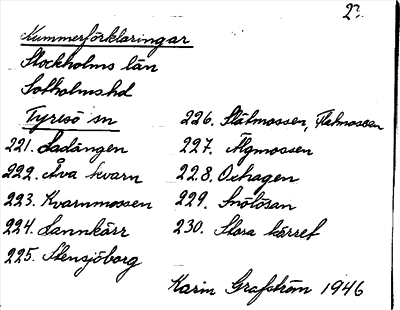 23
Nummerförklaringar
Stockholms län
Sotholms hd
Tyresö sn
221. Ladängen
222. Åva kvarn
223. Kvarnmossen
224. Lannkärr
225. Stensjöborg
226. Slätmossen, Flatmossen
227. Älgmossen
228. Oxhagen
229. Snölösan
230. Stora kärret
Karin Grafström 1946